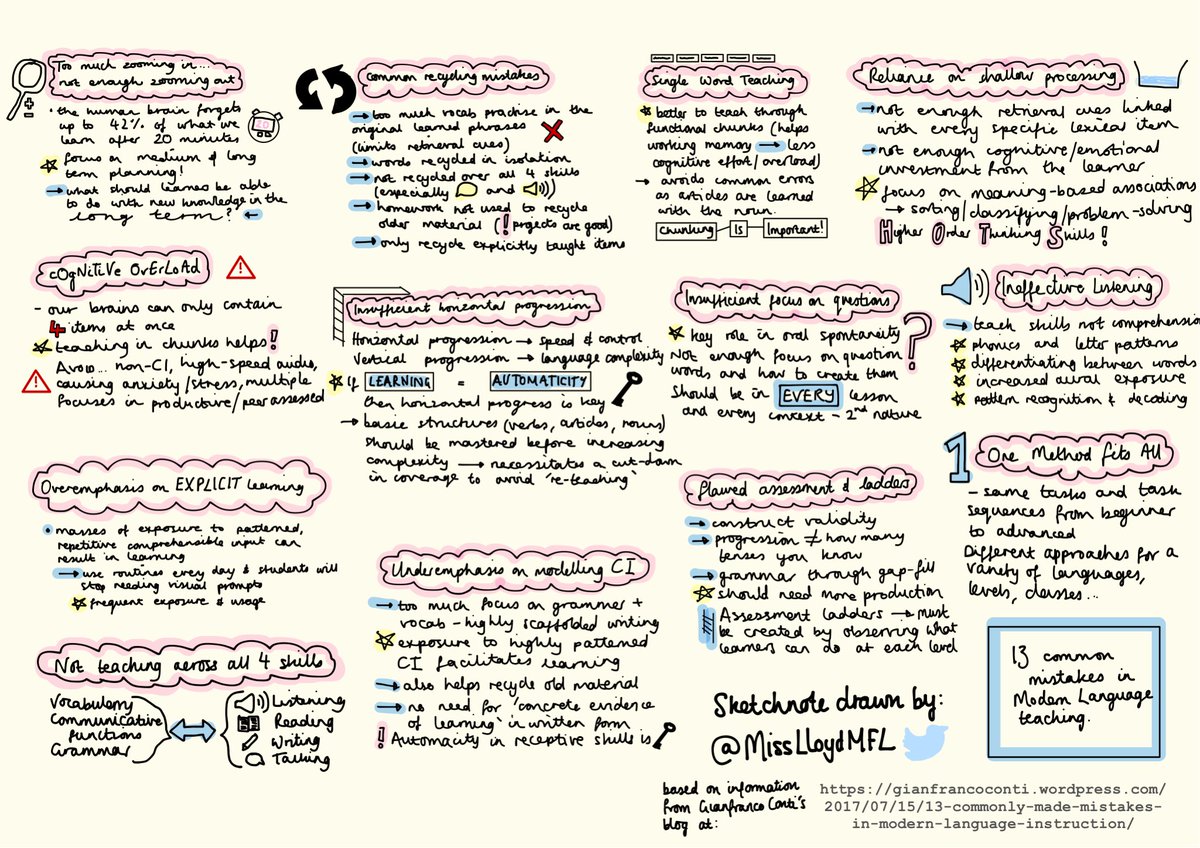 Too much zooming in...
not enough zooming out
• the human brain forgets
up to 42% of what we
learn after 20 minutes
focus on medium & long
term planning!
→ what should learnes be able
to do with new knowledge in the
long term? ←
common recycling mistakes
→ too much vocab practise in the
original learned phrases
(limits retrieval cues)
→ words recycled in isolation
→ not recycled over all 4 skills
(especially and )
→ homework not used to recycle
older material (! projects are good)
→ only recycle explicitly taught items
Single Word Teaching
better to teach through
functional chunks (helps
working memory → less
cognitive effort/overload)
→ avoids common errors
as articles are learned
with the noun.
Chunking is Important!
Reliance on shallow processing
→ not enough retrieval cues linked
with every specific lexical item
→ not enough cognitive/emotional
investment from the learner
focus on meaning-based associations
→ sorting/classifying/problem-solving
Higher Order Thinking Skills!
cOgNiTiVe OvErLoAd
- our brains can only contain
4 items at once
teaching in chunks helps!
Avoid... non-CI, high-speed audio,
causing anxiety/stress, multiple
focuses in productive/peer assessed
Insufficient horizontal progression
Horizontal progression → speed & control
Vertical progression → language complexity
if LEARNING = AUTOMATICITY
then horizontal progress is key
→ basic structures (verbs, articles, nouns)
should be mastered before increasing
complexity → necessitates a cut-down
in coverage to avoid 're-teaching'
Insufficient focus on questions
key role in oral spontaneity
Not enough focus on question
words and how to create them
Should be in EVERY lesson
and every context - 2nd nature
?
Ineffective Listening
→ teach skills not comprehension
phonics and letter patterns
differentiating between words
increased aural exposure
pattern recognition & decoding
Overemphasis on EXPLICIT learning
• masses of exposure to patterned,
repetitive comprehensible input can
result in learning
→ use routines every day & students will
stop needing visual prompts
frequent exposure & usage
Underemphasis on modelling CI
→ too much focus on grammer +
vocab - highly scaffolded writing
exposure to highly patterned
CI facilitates learning
→ also helps recycle old material
→ no need for 'concrete evidence
of learning' in written form
! Automacity in receptive skills is
Flawed assessment & ladders
→ construct validity
→ progression ≠ how many
tenses you know
→ grammar through gap-fill
should need more production
Assessment ladders → must
be created by observing what
learners can do at each level
1 One Method fits All
- same tasks and task
sequences from beginner
to advanced
Different approaches for a
variety of languages,
levels, classes...
Not teaching across all 4 skills
Vocabulary
Communicative
functions
Grammar
Listening
Reading
Writing
Talking
Sketchnote drawn by:
@MissLloydMFL
13 common
mistakes in
Modern Language
teaching.
based on information
from Gianfranco Conti's
blog at:
https://gianfrancoconti.wordpress.com/
2017/07/15/13-commonly-made-mistakes-
in-modern-language-instruction/